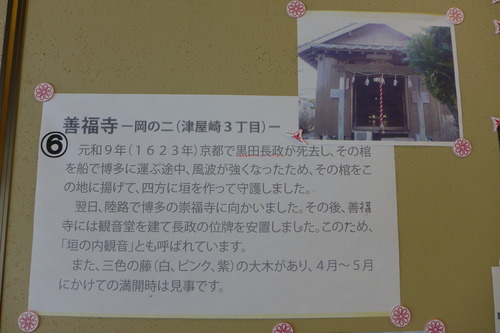 善福寺－岡の二（津屋崎３丁目）－
⑥
元和９年（１６２３年）京都で黒田長政が死去し、その棺
を船で博多に運ぶ途中、風波が強くなったため、その棺をこ
の地に揚げて、四方に垣を作って守護しました。
翌日、陸路で博多の崇福寺に向かいました。その後、善福
寺には観音堂を建て長政の位牌を安置しました。このため、
「垣の内観音」とも呼ばれています。
また、三色の藤（白、ピンク、紫）の大木があり、４月～５月
にかけての満開時は見事です。